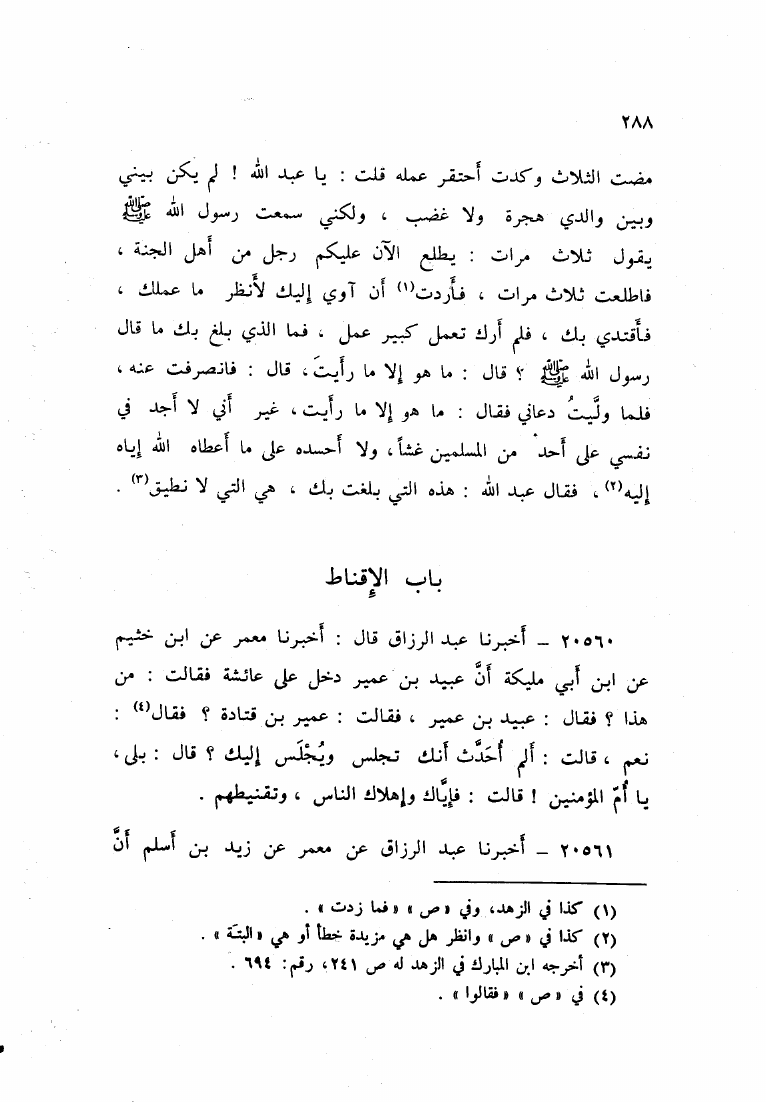 ٢٨٨
مضت الثلاث وكدت أحتقر عمله قلت : يا عبد الله ! لم يكن بيني
وبين والدي هجرة ولا غضب ، ولكني سمعت رسول الله ﷺ
يقول ثلاث مرات : يطلع الآن عليكم رجل من أهل الجنة ،
فاطلعت ثلاث مرات ، فأردت(١) أن آوي إليك لأنظر ما عملك ،
فأقتدي بك ، فلم أرك تعمل كبير عمل ، فما الذي بلغ بك ما قال
رسول الله ﷺ ؟ قال : ما هو إلا ما رأيتَ، قال : فانصرفت عنه،
فلما ولَّيتُ دعاني فقال : ما هو إلا ما رأيت، غير أني لا أجد في
نفسي على أحد من المسلمين غشاً، ولا أحسده على ما أعطاه الله إياه
إليه(٢)، فقال عبد الله : هذه التي بلغت بك ، هي التي لا نطيق(٣) .
باب الإقناط
٢٠٥٦٠ – أخبرنا عبد الرزاق قال : أخبرنا معمر عن ابن خثيم
عن ابن أبي مليكة أنَّ عبيد بن عمير دخل على عائشة فقالت : من
هذا ؟ فقال : عبيد بن عمير ، فقالت : عمير بن قتادة ؟ فقال(٤) :
نعم ، قالت : ألم أُحَدَّث أنك تجلس ويُجْلَس إليك ؟ قال : بلى،
يا أُمّ المؤمنين ! قالت : فإيَّاك وإهلاك الناس ، وتقنيطهم .
٢٠٥٦١ – أخبرنا عبد الرزاق عن معمر عن زيد بن أسلم أنَّ
(١) كذا في الزهد، وفي «ص» «فما زدت» .
(٢) كذا في «ص» وانظر هل هي مزيدة خطأ أو هي «البتة» .
(٣) أخرجه ابن المبارك في الزهد له ص ٢٤١، رقم: ٦٩٤ .
(٤) في «ص» «فقالوا» .